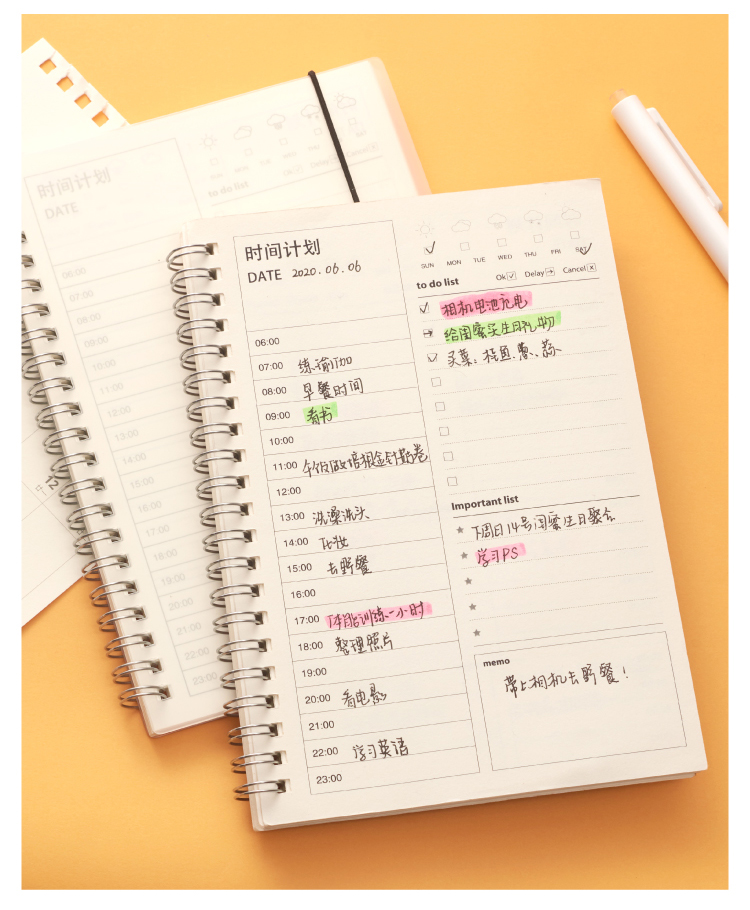 时间计划
DATE
to do list
06:00
07:00
08:00
09:00
10:00
11:00
12:00
13:00
14:00
15:00
16:00
17:00
18:00
19:00
20:00
21:00
22:00
23:00
12
时间计划
DATE 2020.06.06
06:00
07:00 练瑜伽
08:00 早餐时间
09:00 看书
10:00
11:00 午饭做培根金针菇卷
12:00
13:00 洗澡洗头
14:00 化妆
15:00 去野餐
16:00
17:00 体能训练一小时
18:00 整理照片
19:00
20:00 看电影
21:00
22:00 学习英语
23:00
SUN MON TUE WED THU FRI SAT
to do list Ok Delay Cancel
相机电池充电
给闺蜜买生日礼物
买菜：鱼、葱、蒜
Important list
下周日14号闺蜜生日聚会
学习PS
memo
带上相机去野餐！